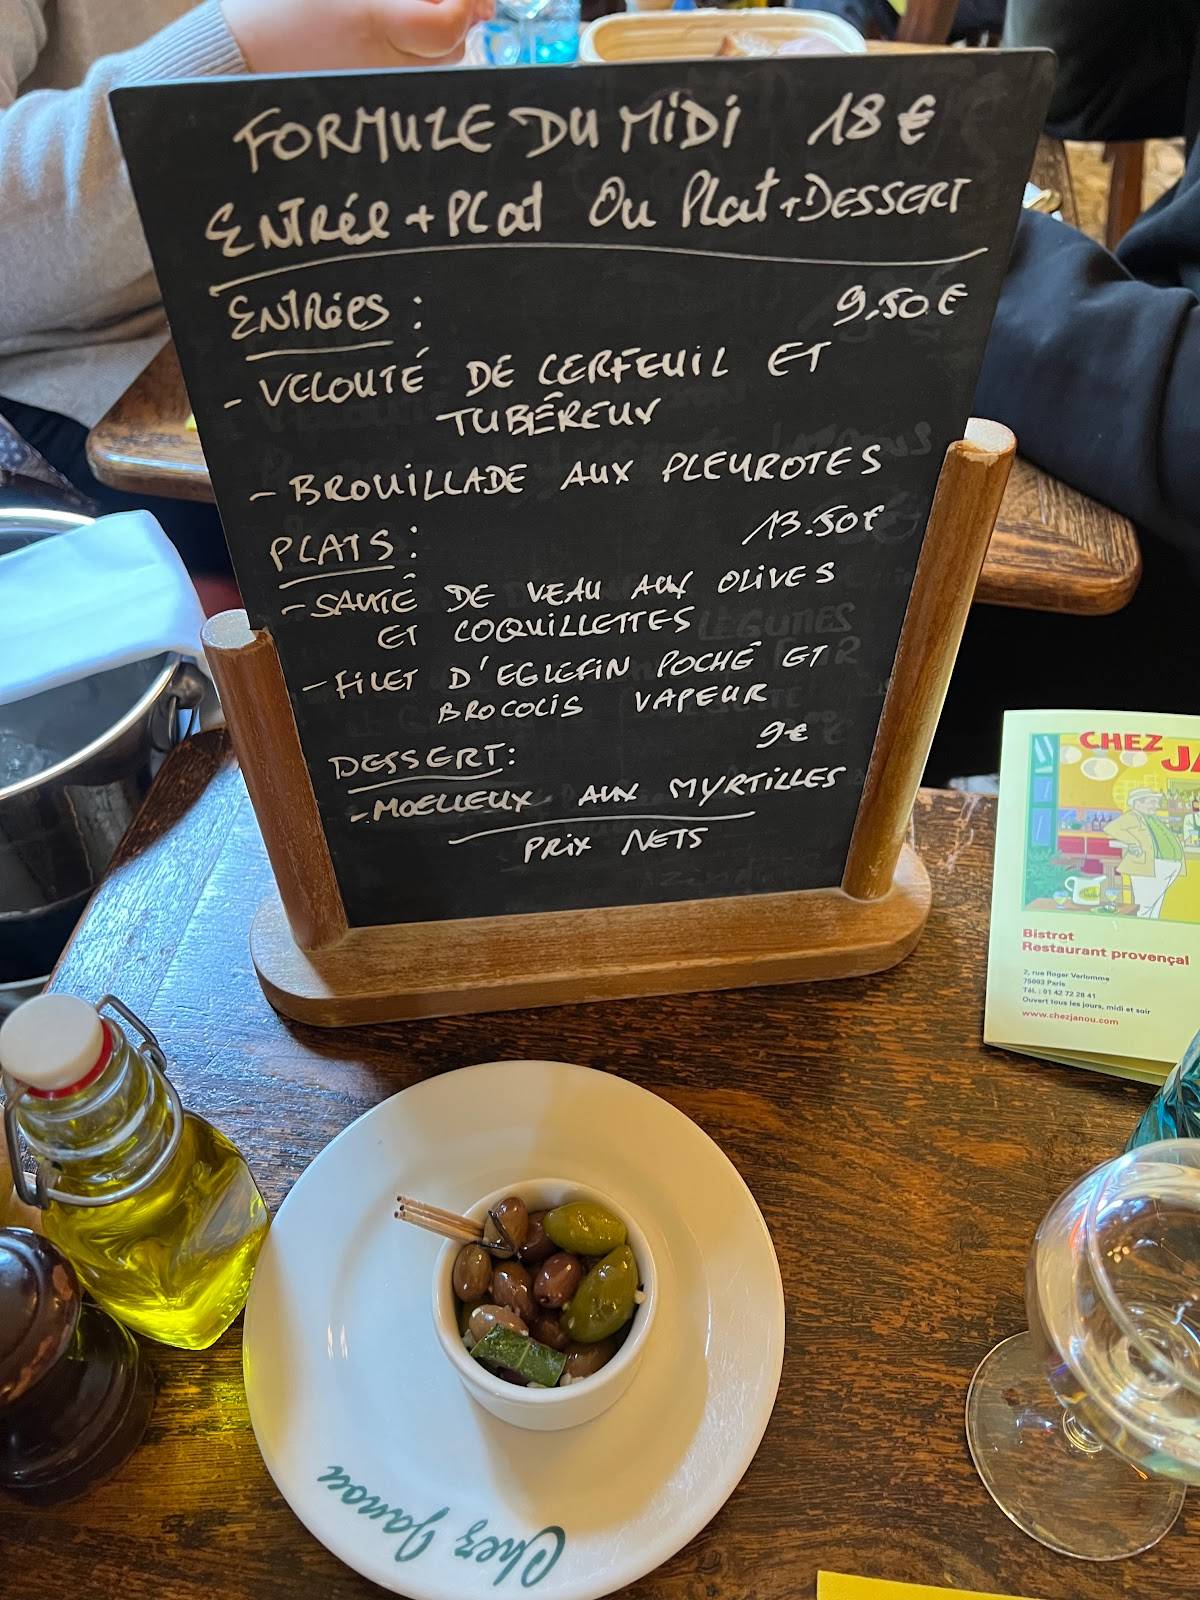 FORMULE DU MiDi 18 €
ENTRÉE + PLAT OU PLAT + DESSERT
ENTRÉES : 9.50 €
- VELOUTÉ DE CERFEUIL ET
TUBÉREUX
- BROUILLADE AUX PLEUROTES
PLATS : 13.50 €
- SAUTÉ DE VEAU AUX OLIVES
ET COQUILLETTES
- FILET D'EGLEFIN POCHÉ ET
BROCOLIS VAPEUR
DESSERT : 9 €
- MOELLEUX AUX MYRTILLES
PRIX NETS
CHEZ JA
Bistrot
Restaurant provençal
2, rue Roger Verlomme
75003 Paris
Tél. : 01 42 72 28 41
Ouvert tous les jours, midi et soir
www.chezjanou.com
Chez Janou